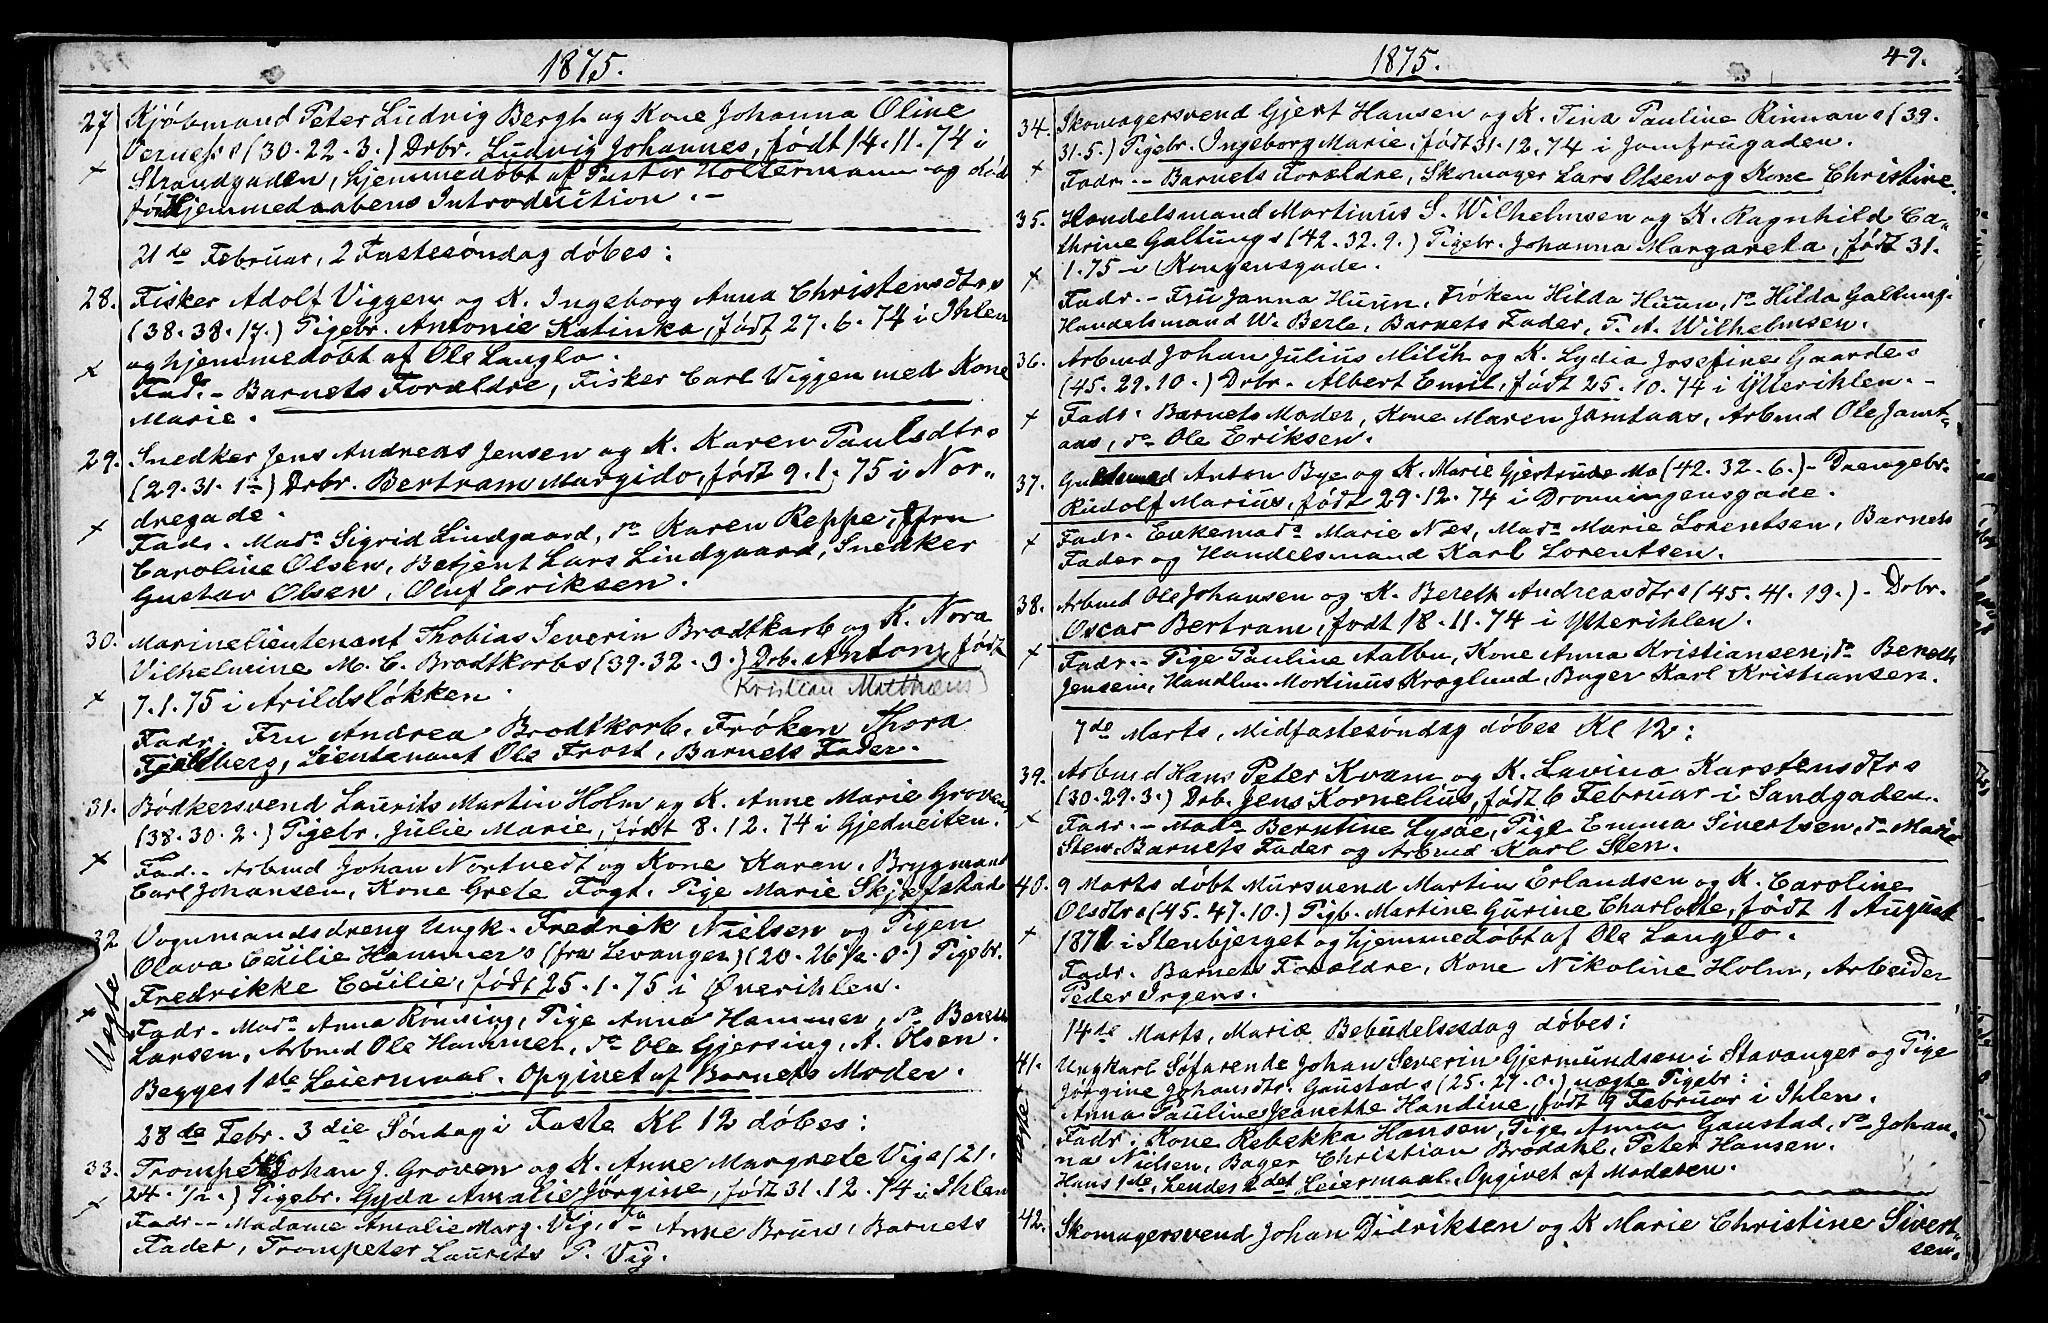 1875.
27 Kjøbmand Peter Ludvig Bergh og Kone Johanna Oline
Verness (30. 22. 3.) Drbr. Ludvig Johannes, født 14. 11. 74 i
x Strandgaden, hjemmedøbt af Pastor Holtermann og død
før Hjemmedaabens Introduction. -
21de Februar, 2 Fastesøndag døbes:
28. Fisker Adolf Viggen og K. Ingeborg Anna Christensdtrs
(38. 38. 17.) Pigebr. Antonie Katinka, født 27. 6. 74 i Ihlen
og hjemmedøbt af Ole Langlo.
x Fadr. - Barnets Forældre, Fisker Carl Viggen med Kone
Marie.
29. Snedker Jens Andreas Jensen og K. Karen Paulsdtrs
(29. 31. 1½) Drbr. Bertram Margido, født 9. 1. 75 i Nor-
dregade.
x Fadr. Mada Sigrid Lindgaard, do Karen Reppe, Jfru
Caroline Olsen, Betjent Lars Lindgaard, Snedker
Gustav Olsen, Oluf Eriksen.
30. Marinelieutenant Thobias Severin Brodtkorb og K. Nora
Vilhelmine M. C. Brodtkorbs (39. 32. 9.) Drb. Anton, født
(Kristian Matthæus)
x 7. 1. 75 i Arildsløkken.
Fadr. Fru Andrea Brodtkorb, Frøken Thora
Fjeldberg, Lieutenant Ole Frost, Barnets Fader.
31. Bødkersvend Laurits Martin Holm og K. Anne Marie Groven,
(38. 30. 2.) Pigebr. Julie Marie, født 8. 12. 74 i Gjedveiten.
x Fad. - Arbmd Johan Nortvedt og Kone Karen, Brygmand
Carl Johansen, Kone Grete Fogt, Pige Marie Skjefstad
32 Vognmandsdreng Ungk. Fredrik Nielsen og Pigen
Olava Cecilie Hammers (fra Levanger) (20. 26½. 0.) Pigebr.
Fredrikke Cecilie, født 25. 1. 75 i Øverihlen.
x Uegte Fadr. Mada Anna Rønsing, Pige Anna Hammer, do Bereth
Larsen, Arbmd Ole Hammer, do Ole Gjersing, A. Olsen.
Begges 1ste Leiermaal. Opgivet af Barnets Moder.
28de Febr. 3die Søndag i Faste Kl 12 døbes:
33. Trompeter Johan J. Groven og K. Anne Margrete Vigs (21.
24. ½.) Pigebr. Gyda Amalie Jørgine, født 31. 12. 74 i Ihlen
x Fadr. - Madame Amalie Marg. Vig, do Anne Bruns, Barnets
Fader, Trompeter Laurits P. Vig.
1875. 49.
34. Skomagersvend Gjert Hansen og K. Tina Pauline Rinnans (39.
31. 5.) Pigebr. Ingeborg Marie, født 31. 12. 74 i Jomfrugaden.
x Fadr. - Barnets Forældre, Skomager Lars Olsen og Kone Christine.
35. Handelsmand Martinus S. Wilhelmsen og K. Ragnhild Ca-
thrine Galtungs (42. 32. 9.) Pigebr. Johanna Margareta, født 31.
x 1. 75 i Kongensgade.
Fadr. - Fru Janna Huun, Frøken Hilda Huun, do Hilda Galtung,
Handelsmand W. Berle, Barnets Fader, P. A. Wilhelmsen.
36. Arbmd Johan Julius Milch og K. Lydia Josefine Gaardes
(45. 29. 10.) Drbr. Albert Emil, født 25. 10. 74 i Ytterihlen. -
x Fadr. Barnets Moder, Kone Maren Jamtaas, Arbmd Ole Jamt-
aas, do Ole Eriksen.
37. Guldsmed Anton Bye og K. Marie Gjertrude Mo (42. 32. 6.) - Drengebr.
Rudolf Marius, født 29. 12. 74 i Dronningensgade.
x Fadr. Enkemada Marie Næs, Mada Marie Lorentsen, Barnets
Fader og Handelsmand Karl Lorentsen.
38. Arbmd Ole Johansen og K. Bereth Andreasdtrs (45. 41. 19.) - Drbr.
Oscar Bertram, født 18. 11. 74 i Ytterihlen.
x Fadr. - Pige Pauline Aalbu, Kone Anna Kristiansen, do Bereth
Jensen, Handlm Martinus Kroglund, Bager Karl Kristiansen.
7de Marts, Midfastesøndag døbes Kl 12:
39. Arbmd Hans Peter Kvam og K. Lavina Karstensdtrs
(30. 29. 3.) Drb. Jens Kornelius, født 6 Februar i Sandgaden.
x Fadr. - Mada Berntine Lysøe, Pige Emma Sivertsen, do Marie
Sten, Barnets Fader og Arbmd Karl Sten.
40. 9 Marts døbt Mursvend Martin Erlandsen og K. Caroline
Olsdtrs (45. 47. 10.) Pigb. Martine Gurine Charlotte, født 1 August
x 1871 i Stenbjerget og hjemmedøbt af Ole Langlo.
Fadr. Barnets Forældre, Kone Nikoline Holm, Arbeider
Peder Irgens.
14de Marts, Mariæ Bebudelsesdag døbes:
41. Ungkarl Søfarende Johan Severin Gjermundsen i Stavanger og Pige
Jørgine Johansdtr. Gaustads (25. 27. 0.) uægte Pigebr:
x uegte Anna Pauline Jeanette Handine, født 9 Februar i Ihlen.
Fadr: Kone Rebekka Hansen, Pige Anna Gaustad, do Johan-
na Nielsen, Bager Christian Brodahl, Peter Hansen.
Hans 1ste, hendes 2det Leiermaal. Opgivet af Moderen.
42. Skomagersvend Johan Didriksen og K Marie Christine Sivert-
sen.